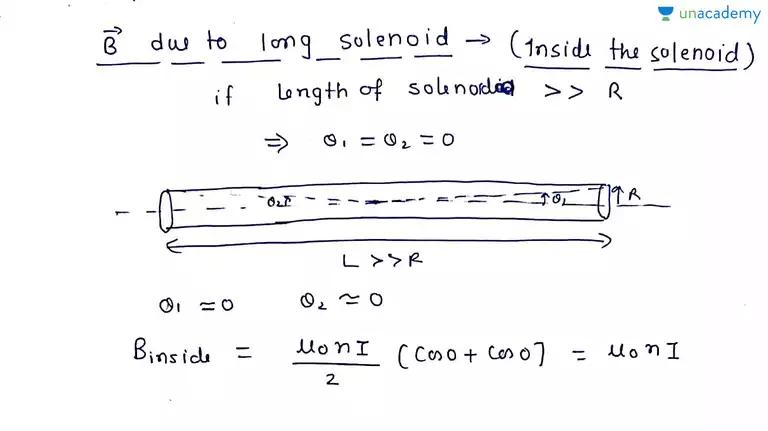 unacademy
B⃗ due to long solenoid → (Inside the solenoid)
if Length of solenoid >> R
⇒ θ₁ = θ₂ = 0
θ₂ θ₁ R
L >> R
θ₁ ≈ 0 θ₂ ≈ 0
Binside = μ₀nI/2 (Cos0 + Cos0] = μ₀nI